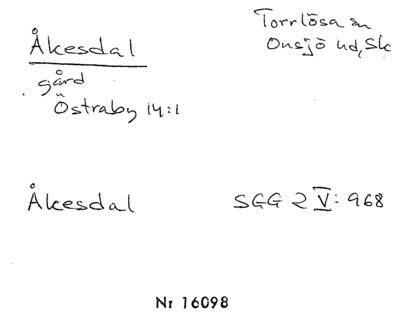 Åkesdal
Torrlösa sn
Onsjö hd, Sk
gård
Östraby 14:1
Åkesdal
SGG 2 V: 968
Nr 16098